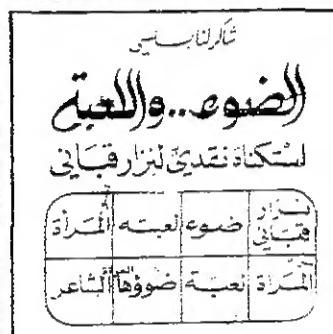 شاكر النابلسي
الضوء..واللعبة
استكناه نقدي لنزار قباني
نزار قباني ضوء لعبته المرأة
المرأة لعبة ضوؤها الشاعر